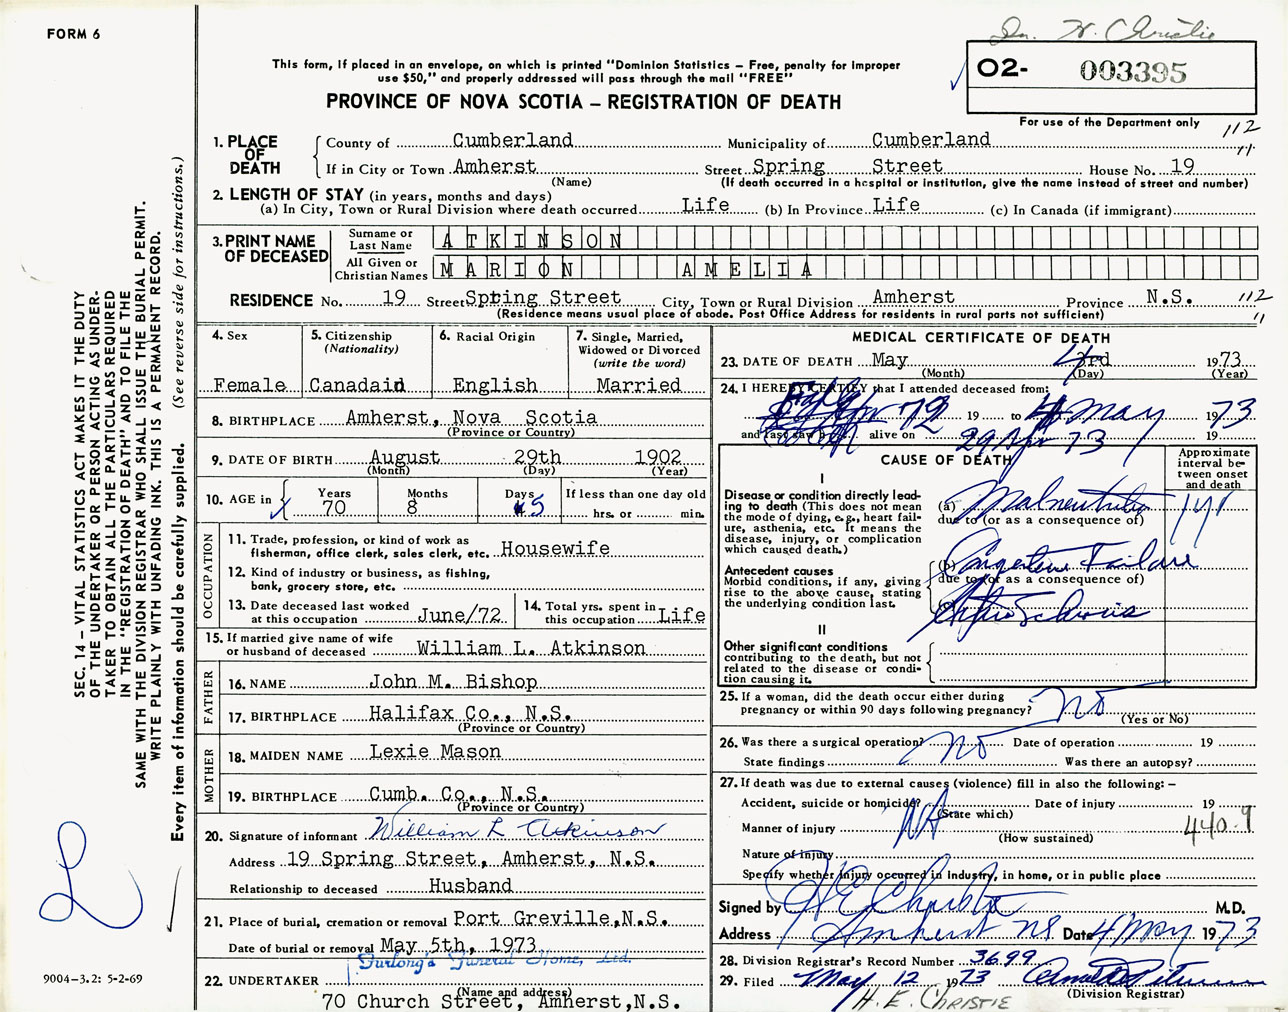 FORM 6
Dr. H. Christie
This form, if placed in an envelope, on which is printed "Dominion Statistics – Free, penalty for improper
use $50," and properly addressed will pass through the mail "FREE"
02- 003395
PROVINCE OF NOVA SCOTIA – REGISTRATION OF DEATH
For use of the Department only
112
11
1. PLACE OF DEATH
County of Cumberland Municipality of Cumberland
If in City or Town Amherst Street Spring Street House No. 19
(Name) (If death occurred in a hospital or institution, give the name instead of street and number)
2. LENGTH OF STAY (in years, months and days)
(a) In City, Town or Rural Division where death occurred Life (b) In Province Life (c) In Canada (if immigrant)
3. PRINT NAME OF DECEASED
Surname or Last Name ATKINSON
All Given or Christian Names MARION AMELIA
RESIDENCE No. 19 Street Spring Street City, Town or Rural Division Amherst Province N.S. 112
11
(Residence means usual place of abode. Post Office Address for residents in rural parts not sufficient)
4. Sex
Female
5. Citizenship
(Nationality)
Canadain
6. Racial Origin
English
7. Single, Married,
Widowed or Divorced
(write the word)
Married
8. BIRTHPLACE Amherst, Nova Scotia
(Province or Country)
9. DATE OF BIRTH August 29th 1902
(Month) (Day) (Year)
10. AGE in
Years Months Days If less than one day old
70 8 5 hrs. or min.
OCCUPATION
11. Trade, profession, or kind of work as
fisherman, office clerk, sales clerk, etc. Housewife
12. Kind of industry or business, as fishing,
bank, grocery store, etc.
13. Date deceased last worked
at this occupation June/72
14. Total yrs. spent in
this occupation Life
15. If married give name of wife
or husband of deceased William L. Atkinson
FATHER
16. NAME John M. Bishop
17. BIRTHPLACE Halifax Co., N.S.
(Province or Country)
MOTHER
18. MAIDEN NAME Lexie Mason
19. BIRTHPLACE Cumb. Co., N.S.
(Province or Country)
20. Signature of informant William L Atkinson
Address 19 Spring Street, Amherst, N.S.
Relationship to deceased Husband
21. Place of burial, cremation or removal Port Greville, N.S.
Date of burial or removal May 5th, 1973
Furlong's Funeral Home, Ltd.
22. UNDERTAKER
(Name and address)
70 Church Street, Amherst, N.S.
MEDICAL CERTIFICATE OF DEATH
23. DATE OF DEATH May 4 3rd 1973
(Month) (Day) (Year)
24. I HEREBY CERTIFY that I attended deceased from:
72 19 to 4 May 1973
and last saw h alive on 29 Apr 73 19
CAUSE OF DEATH
Approximate
interval be-
tween onset
and death
I
Disease or condition directly lead-
ing to death (This does not mean
the mode of dying, e.g., heart fail-
ure, asthenia, etc. It means the
disease, injury, or complication
which caused death.)
(a) Malnutrition 1 yr
due to (or as a consequence of)
Antecedent causes
Morbid conditions, if any, giving
rise to the above cause, stating
the underlying condition last.
(b) Congestive Failure
due to (or as a consequence of)
II
Other significant conditions
contributing to the death, but not
related to the disease or condi-
tion causing it.
25. If a woman, did the death occur either during
pregnancy or within 90 days following pregnancy? No
(Yes or No)
26. Was there a surgical operation? No Date of operation 19
State findings Was there an autopsy?
27. If death was due to external causes (violence) fill in also the following: –
Accident, suicide or homicide? Date of injury 19
(State which)
NA
Manner of injury 440.9
(How sustained)
Nature of injury
Specify whether injury occurred in industry, in home, or in public place
Signed by H E Christie M.D.
Address Amherst NS Date 4 May 1973
28. Division Registrar's Record Number 3699
29. Filed May 12 1973
(Division Registrar)
H. E. CHRISTIE
SEC. 14 – VITAL STATISTICS ACT MAKES IT THE DUTY
OF THE UNDERTAKER OR PERSON ACTING AS UNDER-
TAKER TO OBTAIN ALL THE PARTICULARS REQUIRED
IN THE "REGISTRATION OF DEATH" AND TO FILE THE
SAME WITH THE DIVISION REGISTRAR WHO SHALL ISSUE THE BURIAL PERMIT.
WRITE PLAINLY WITH UNFADING INK. THIS IS A PERMANENT RECORD.
Every item of information should be carefully supplied. (See reverse side for instructions.)
9004-3.2: 5-2-69